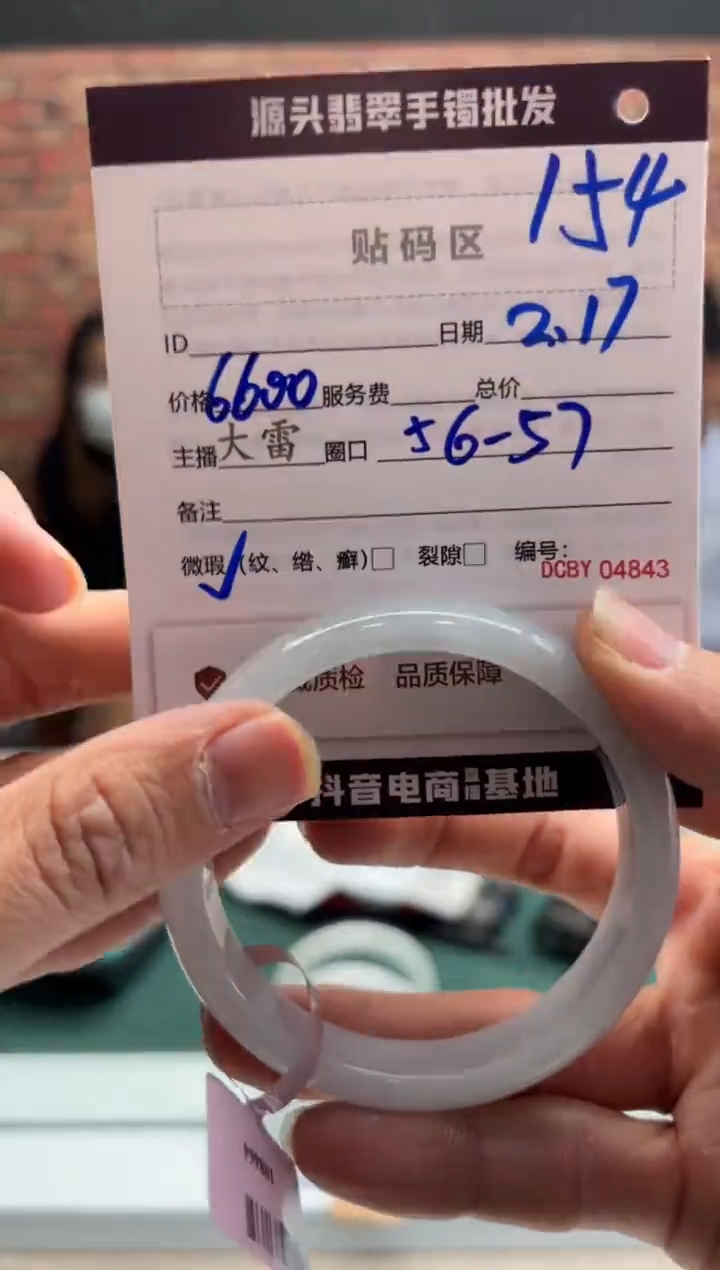 源头翡翠手镯批发
154
贴码区
ID 日期 2.17
价格 6600 服务费 总价
主播 大雷 圈口 56-57
备注
微瑕 (纹、绺、癣) 裂隙 编号:
DCBY 04843
质检 品质保障
抖音电商直播基地